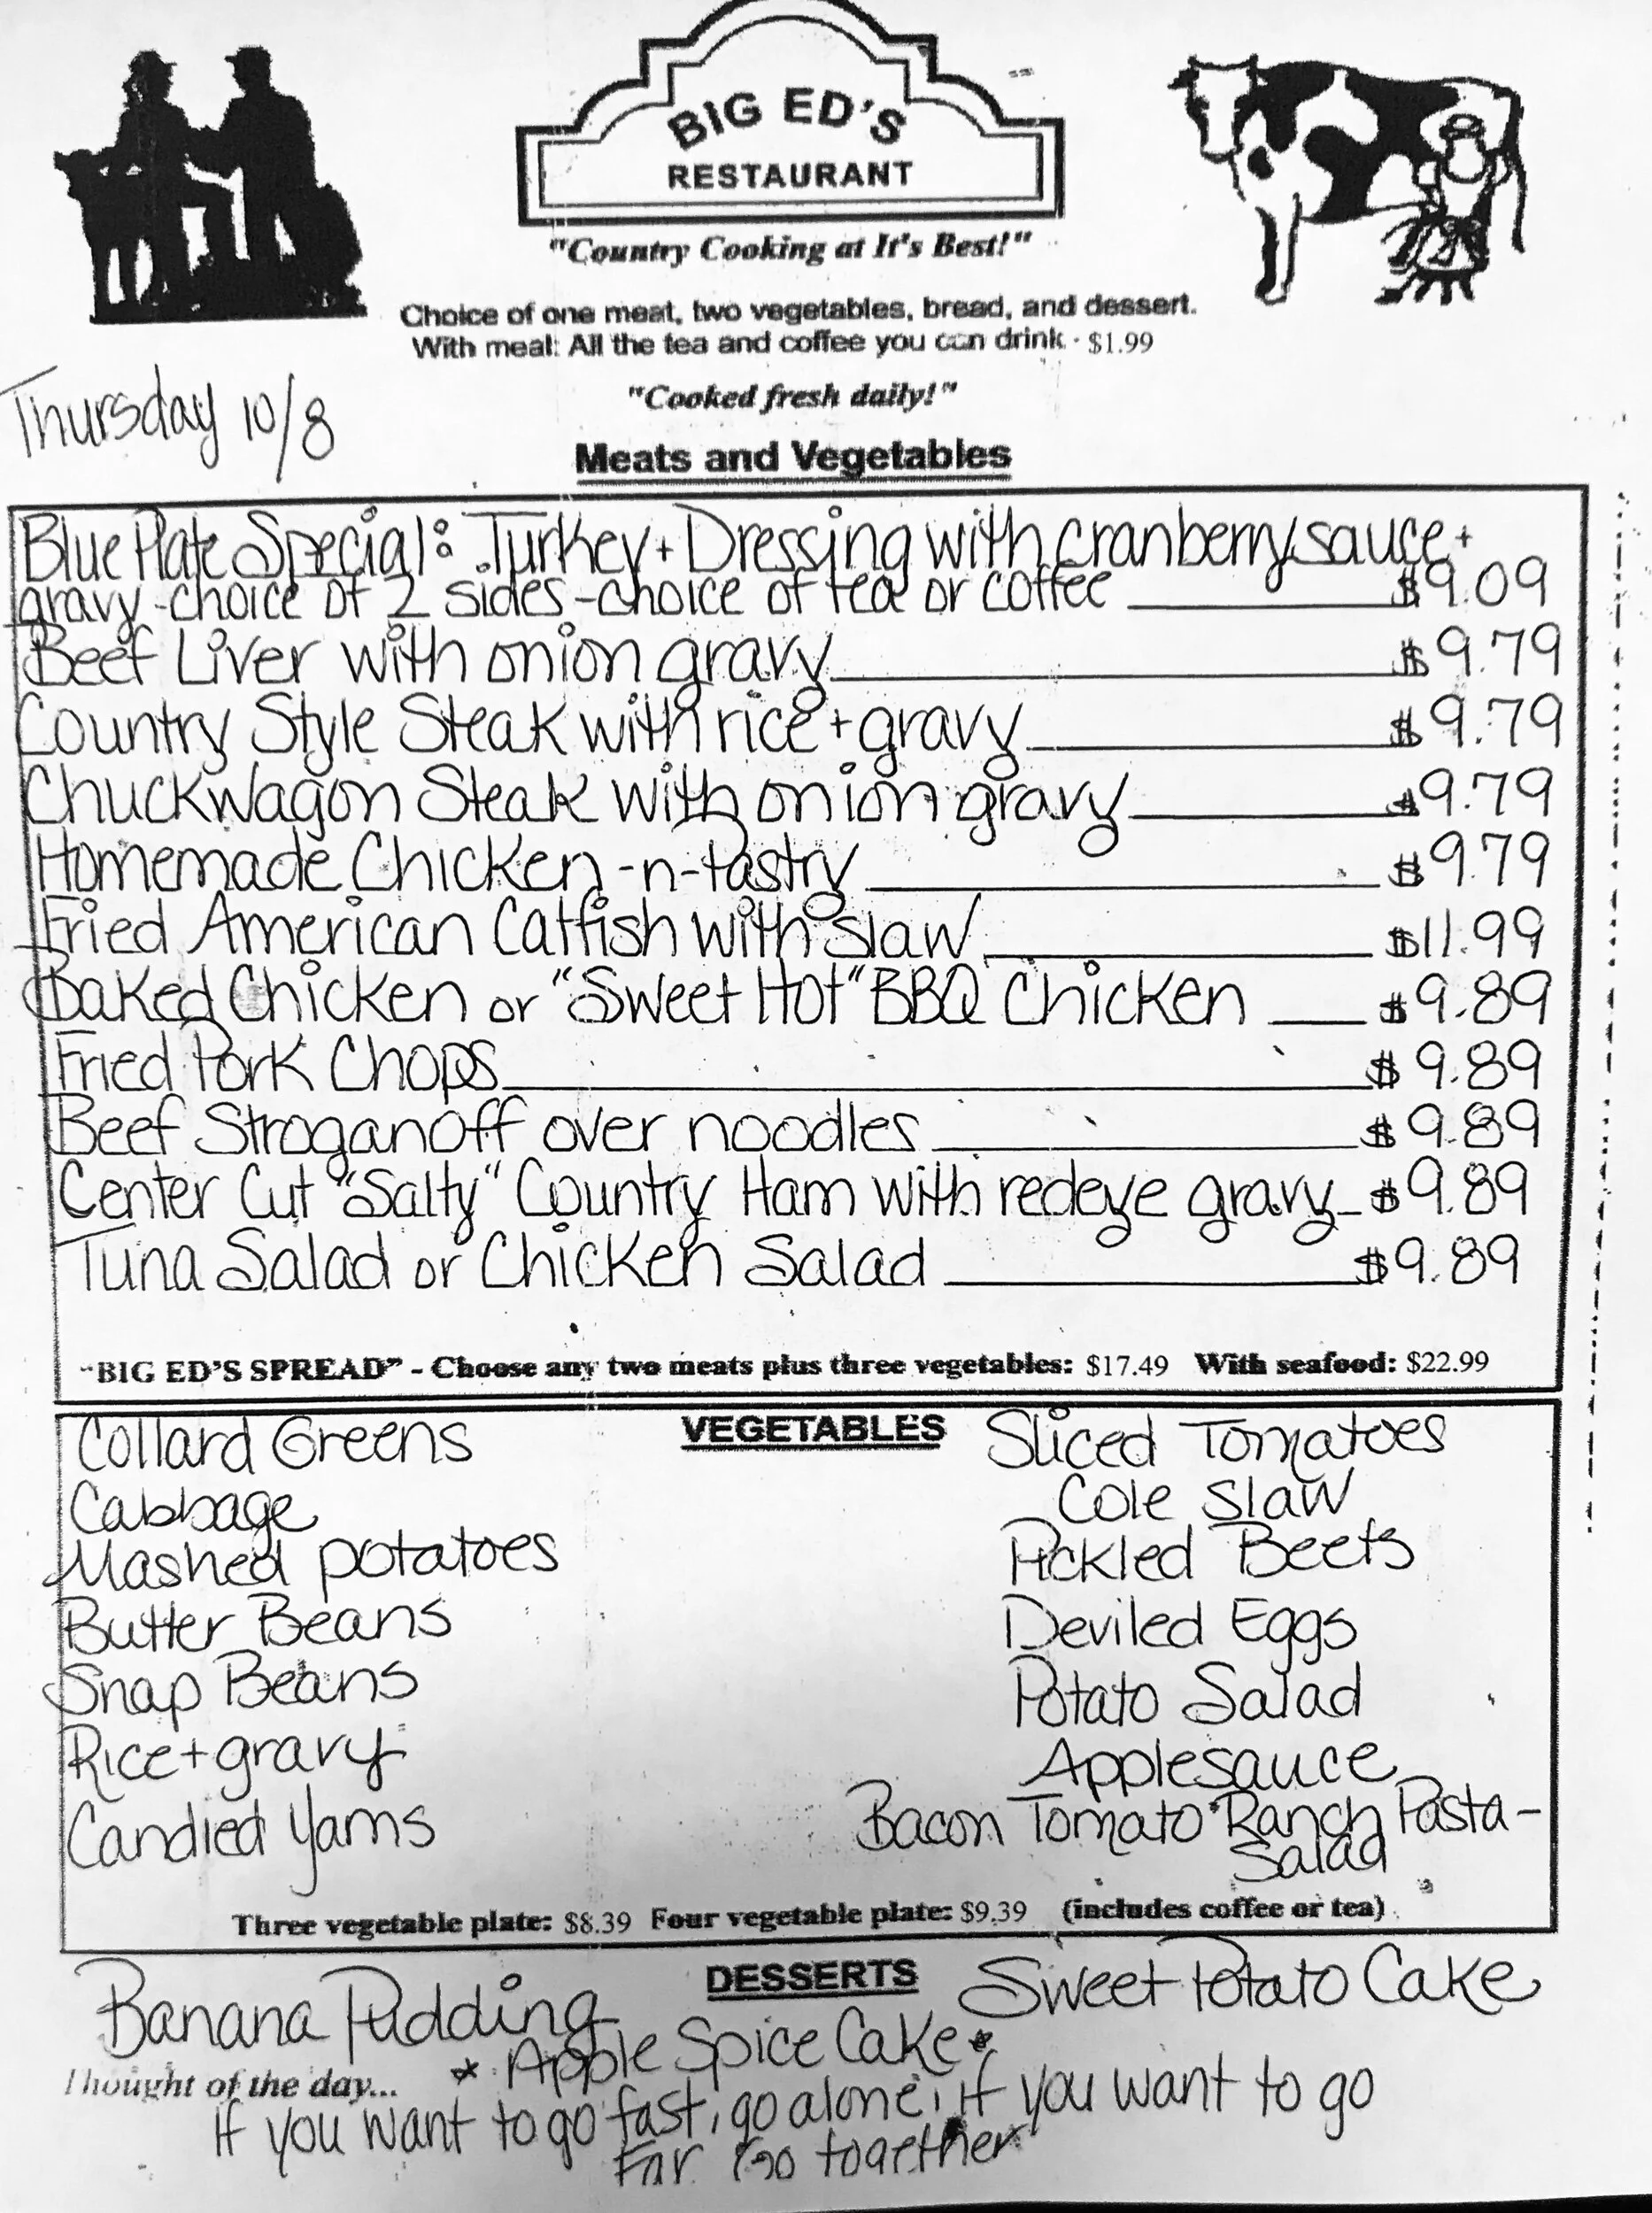 BIG ED'S
RESTAURANT
"Country Cooking at It's Best!"
Choice of one meat, two vegetables, bread, and dessert.
With meal: All the tea and coffee you can drink - $1.99
"Cooked fresh daily!"
Thursday 10/8
Meats and Vegetables
Blue Plate Special: Turkey + Dressing with cranberry sauce +
gravy - choice of 2 sides - choice of tea or coffee $9.09
Beef Liver with onion gravy $9.79
Country Style Steak with rice + gravy $9.79
Chuckwagon Steak with onion gravy $9.79
Homemade Chicken-n-Pastry $9.79
Fried American Catfish with slaw $11.99
Baked Chicken or "Sweet Hot" BBQ Chicken $9.89
Fried Pork Chops $9.89
Beef Stroganoff over noodles $9.89
Center Cut "Salty" Country Ham with redeye gravy $9.89
Tuna Salad or Chicken Salad $9.89
"BIG ED'S SPREAD" - Choose any two meats plus three vegetables: $17.49 With seafood: $22.99
VEGETABLES
Collard Greens
Cabbage
Mashed potatoes
Butter Beans
Snap Beans
Rice + gravy
Candied Yams
Sliced Tomatoes
Cole Slaw
Pickled Beets
Deviled Eggs
Potato Salad
Applesauce
Bacon Tomato Ranch Pasta -
Salad
Three vegetable plate: $8.39 Four vegetable plate: $9.39 (includes coffee or tea)
DESSERTS
Banana Pudding
Sweet Potato Cake
* Apple Spice Cake *
Thought of the day...
If you want to go fast, go alone, if you want to go
Far Go together